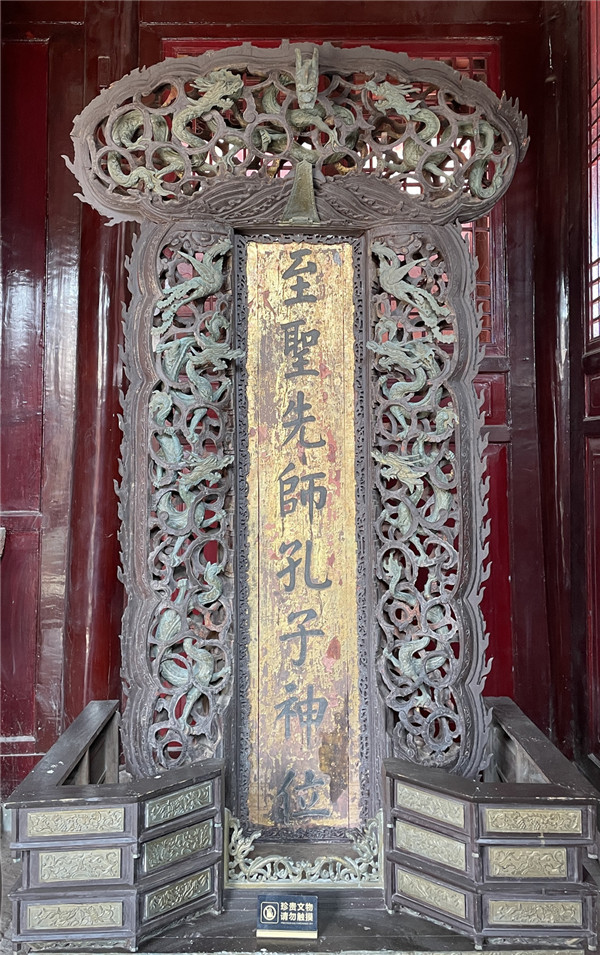 至聖先師孔子神位
珍贵文物
请勿触摸